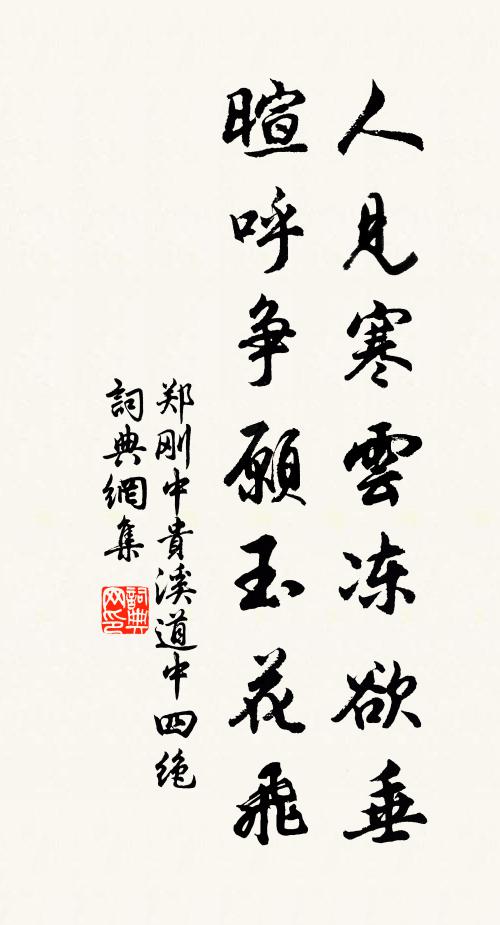 人見寒雲冻欲垂
暄呼争願玉花飛
郑刚中貴溪道中四绝
詞典網集
詞典网印